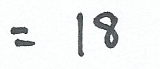 = 18